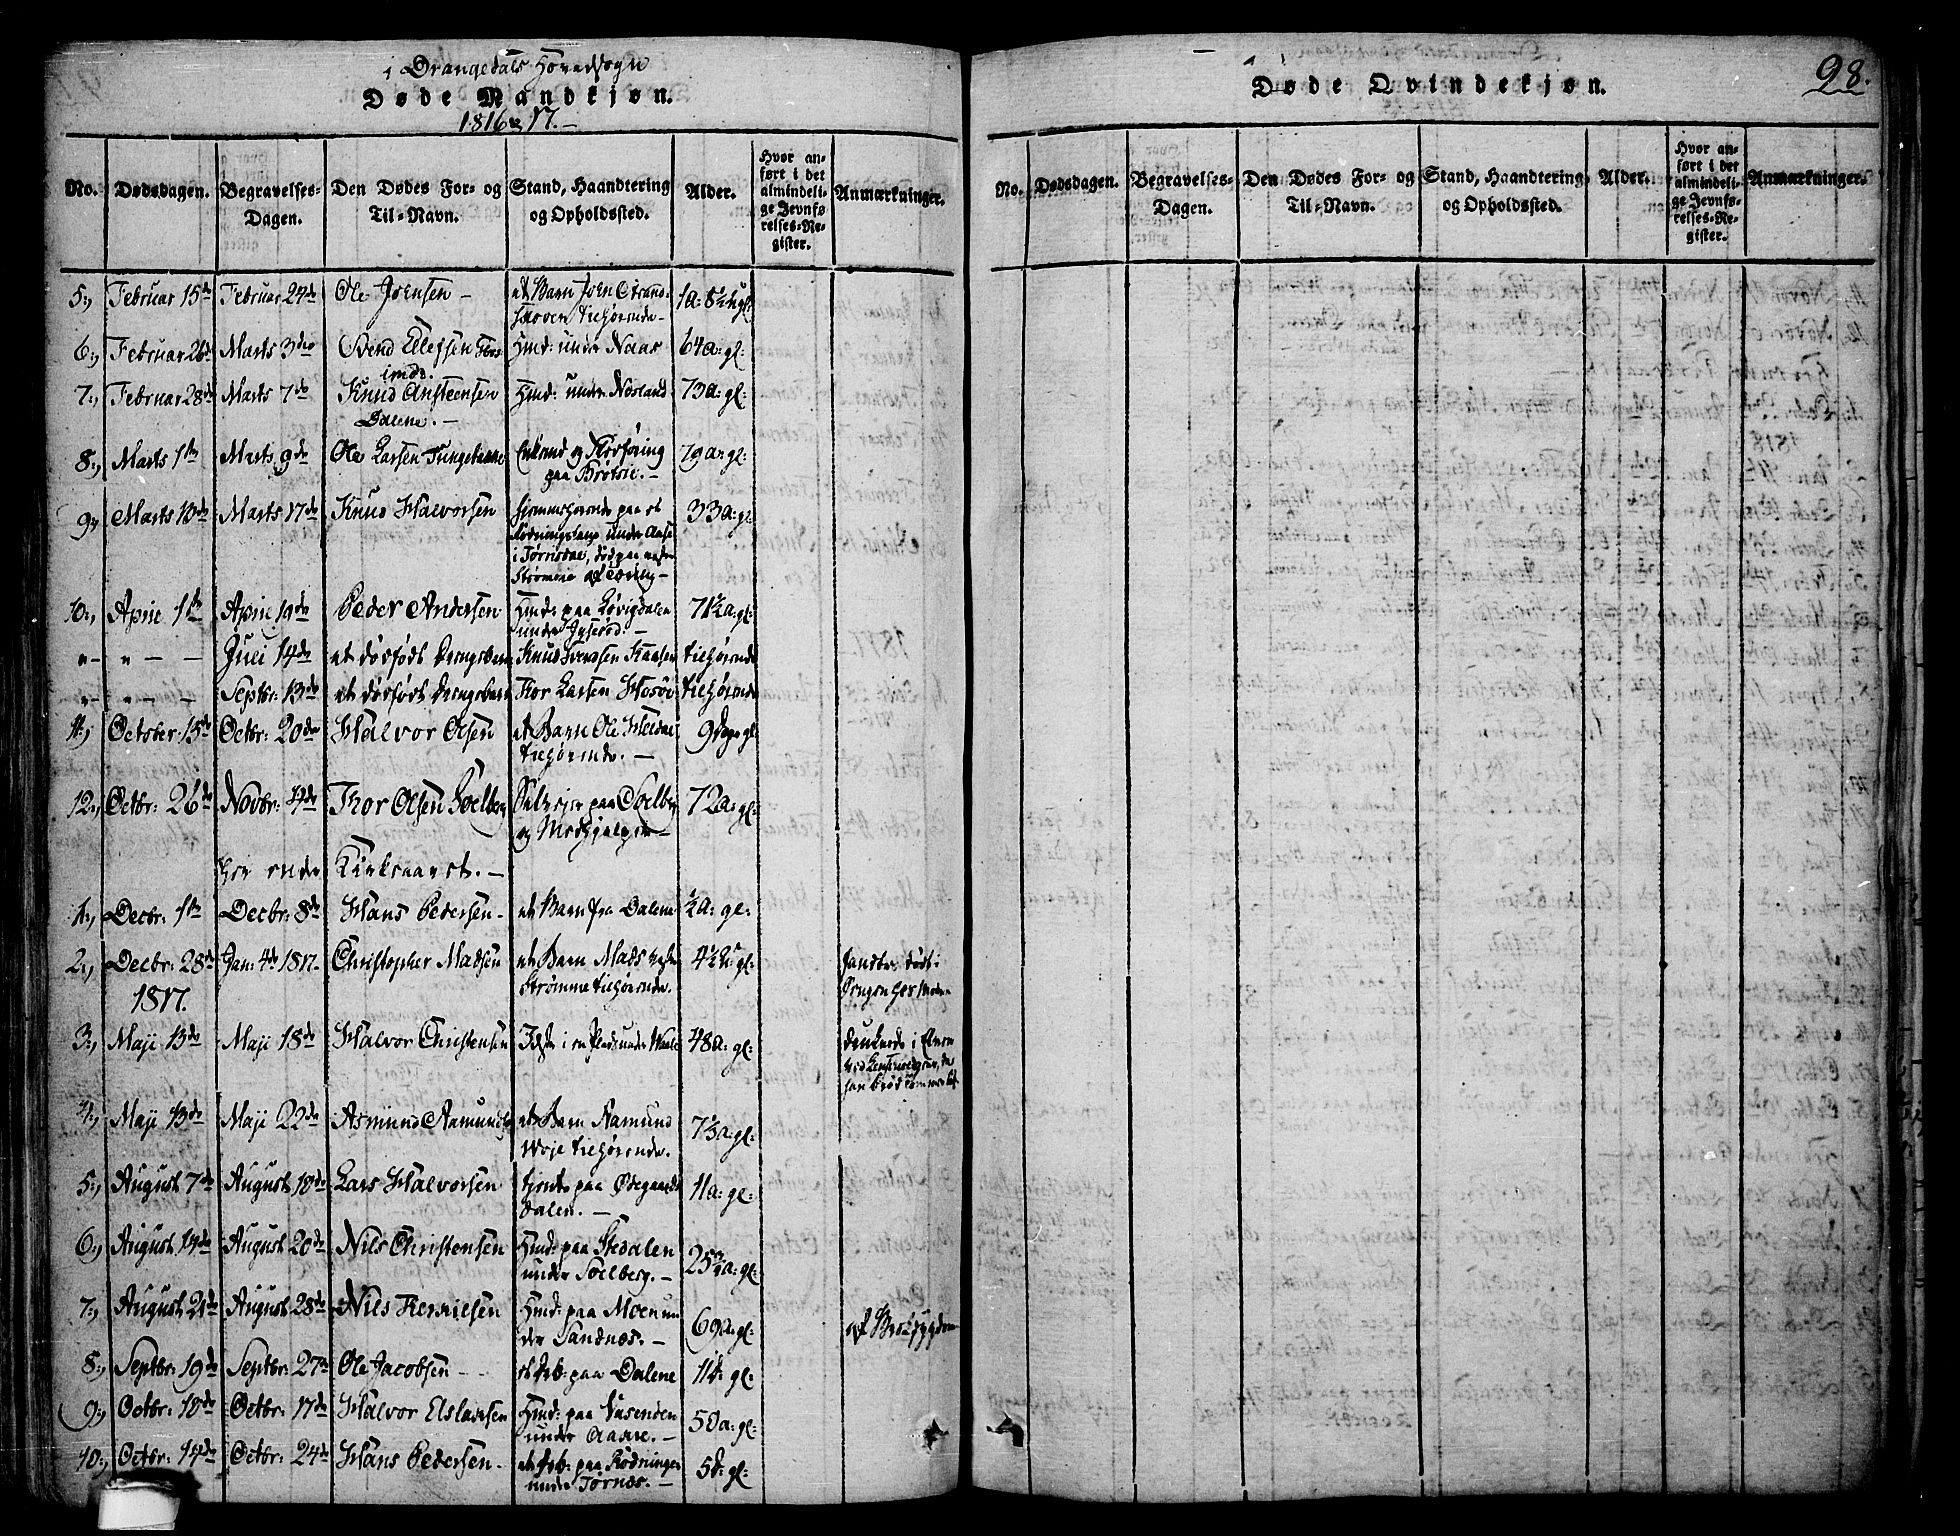 i Drangedals Hovedsogn
Døde Mandkjøn.
1816 & 17. -
No. Dødsdagen. Begravelses-Dagen. Den Dødes For- og Til-Navn. Stand, Haandtering og Opholdssted. Alder. Hvor anført i det almindelige Jevnførelses-Register. Anmærkninger.
5, Februar 15de Februar 24de Ole Joensen - et Barn Joen Strand-
skoven tilhørende - 1 a: 8 1/2 u gl:
6, Februar 26de Marts 3die Svend Ellefsen Hmd: under Naas 64 a: gl:
7, Februar 28de Marts 7de Knud Ansteensen Hmd: under Nosland 73 a: gl:
Dalene. -
8, Marts 1te Marts 9de Ole Larsen Enkemd og Kosføring 79 a: gl:
paa Brøtsie. -
9, Marts 13de Marts 17de Knud Halvorsen hjemmehørende paa et 33 a: gl:
Rødningsplads under Aase
i Tørrisdal, død paa
Strømme af Tæring -
10, April 1te April 19de Peder Andersen Hmd: paa Løvigdalen 71 1/2 a: gl:
under -
" - " - - Juli 14de et dødfødt Drengebarn Knud Svensen tilhørende
" - " - - Septbr: 13de et dødfødt Drengebarn Thor Larsen tilhørende
11, October 15de Octbr: 20de Halvor Olsen et Barn Ole 9 dage gl:
tilhørende. -
12, Octbr: 26de Novbr: 4de Thor Olsen Soelberg Selvejer paa Soelberg 72 a: gl:
og Medhjelper -
Her ender Kirkeaaret. -
1, Decbr: 1te Decbr: 8de Hans Pedersen - et Barn fra Dalene 1/2 a: gl:
2, Decbr: 28de Jan: 4de 1817. Christopher Madsen et Barn Mads
Strømme tilhørende. 4 1/2 u: gl:
1817.
3, Maji 13de Maji 18de Halvor Christensen 48 a: gl: druknede i Elven
4, Maji 13de Maji 22de Asmund Aamunds. et Barn Aamund
Woje tilhørende. 7 1/3 a: gl:
5, August 7de August 10de Lars Halvorsen tjente paa Ødegaards
dalen. - 11 a: gl:
6, August 14de August 20de Nils Christensen Hmd: paa Stedalen
under Soelberg. - 25 3/4 a: gl:
7, August 21de August 28de Nils Henricsen Hmd: paa Moen un-
der Sandnæs. - 69 a: gl: af Brøstsygdom
8, Septbr: 19de Septbr: 27de Ole Jacobsen - - paa Dalene 11 d: gl:
9, Octbr: 10de Octbr: 17de Halvor Eslavsen Hmd: paa Vasenden
under Aasne. - 50 a: gl:
10, Octbr: 14de Octbr: 24de Hans Pedersen - paa Rødningen
under Tørnæs. - 5 d: gl:
98.
Døde Qvindekjøn.
No. Dødsdagen. Begravelses-Dagen. Den Dødes For- og Til-Navn. Stand, Haandtering og Opholdssted. Alder. Hvor anført i det almindelige Jevnførelses-Register. Anmærkninger.